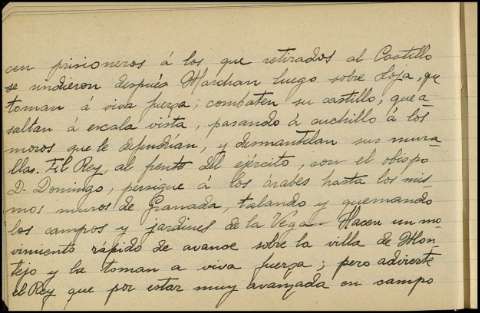 cen prisioneros á los que retirados al Castillo
se rindieron después Marchan luego sobre Loja, que
toman á viva fuerza; combaten su castillo, que a-
saltan á escala vista, pasando á cuchillo á los
moros que le defendian, y desmantelan sus mura-
llas. El Rey, al frente del ejército, con el obispo
D. Domingo, persigue á los árabes hasta los mis
mos muros de Granada, talando y quemando
los campos y jardines de la Vega. Hacen un mo-
vimiento rápido de avance sobre la villa de Mon-
tejo y la toman a viva fuerza; pero advierte
el Rey que por estar muy avanzada en campo